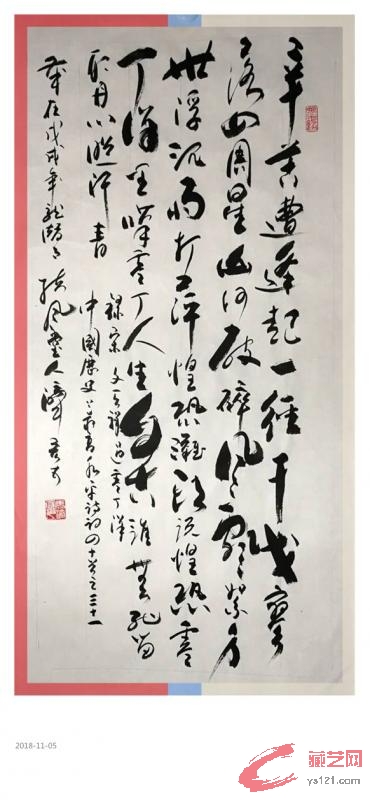 辛苦遭逢起一经干戈寥
落四周星山河破碎风飘絮身
世浮沉雨打萍惶恐滩头说惶恐零
丁洋里叹零丁人生自古谁无死留
取丹心照汗青
录宋文天祥过零丁洋
中國历史上最有水平诗词四十首之三十一
岁在戊戌年
2018-11-05
藏艺网
ys121.com